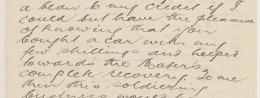 a bean to my credit if I
could but have the pleasure
of knowing that you
bought a car with my
few shillings and helped
towards the Mater's
complete recovery. So are
then this soldiering
business would be